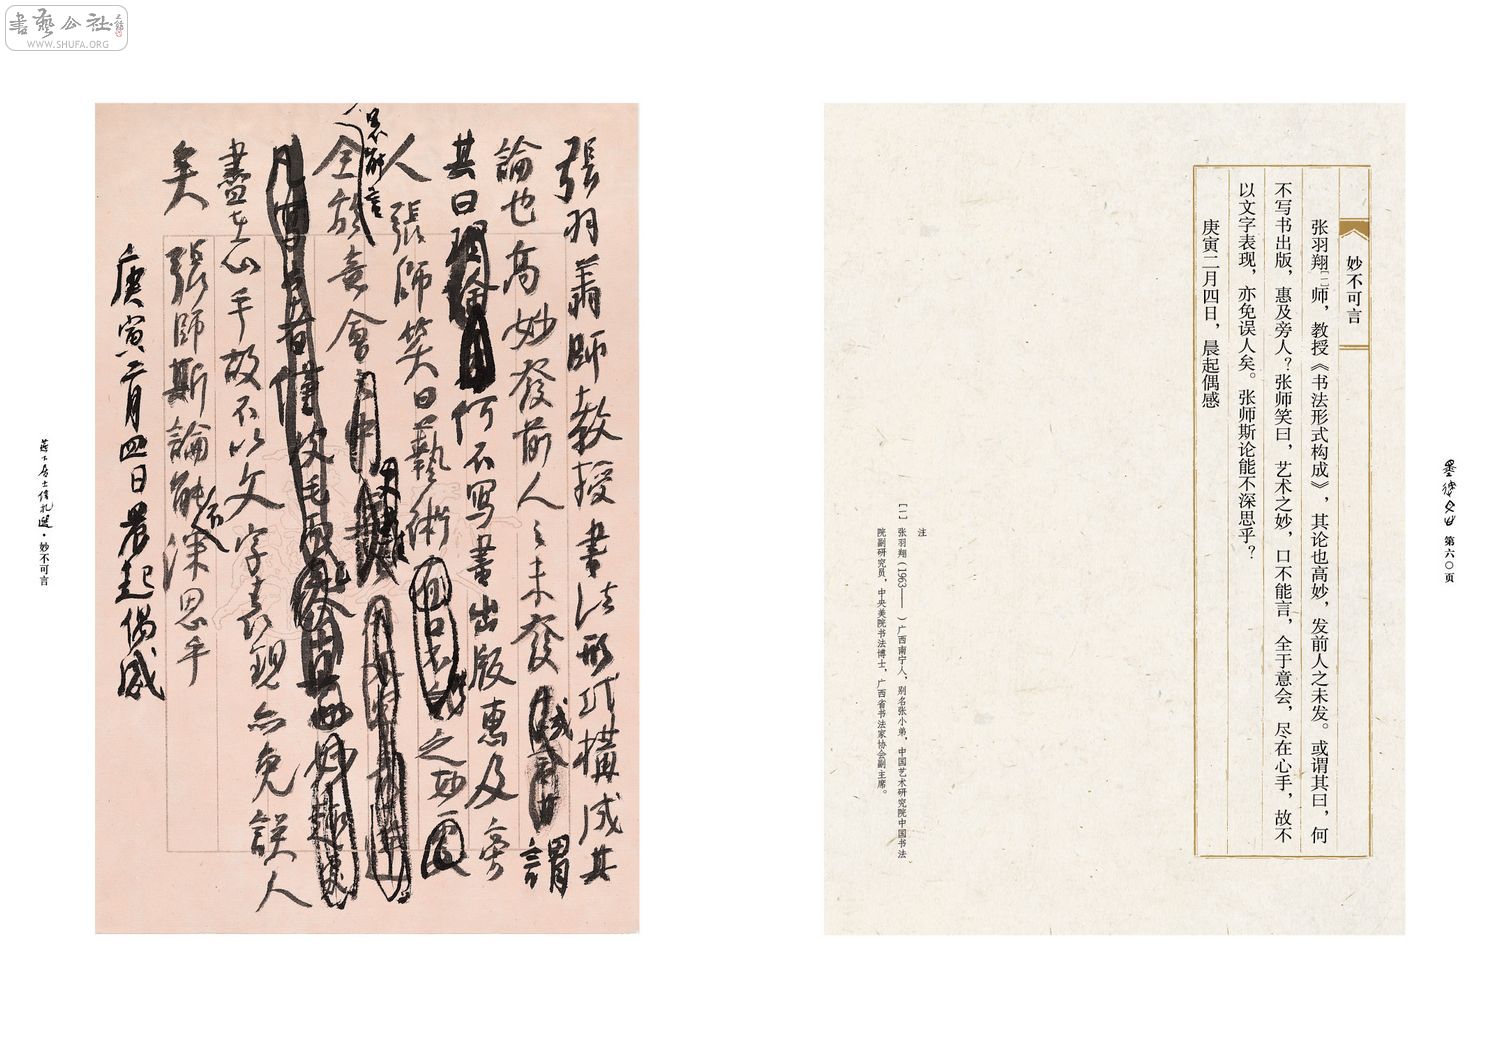 書藝公社
WWW.SHUFA.ORG
墨缘
第六〇页
妙不可言
张羽翔[一]师，教授《书法形式构成》，其论也高妙，发前人之未发。或谓其曰，何
不写书出版，惠及旁人？张师笑曰，艺术之妙，口不能言，全于意会，尽在心手，故不
以文字表现，亦免误人矣。张师斯论能不深思乎？
庚寅二月四日，晨起偶感
注
[一] 张羽翔（1963—— ）广西南宁人，别名张小弟，中国艺术研究院中国书法
院副研究员，中央美院书法博士，广西省书法家协会副主席。
張羽翔師教授書法形式構成其
論也高妙發前人之未發 謂
其曰 何不写書出版惠及旁
人張師笑曰藝術 之妙
口不能言
全於意會
盡在心手故不以文字表現亦免誤人
矣張師斯論能不深思乎
庚寅二月四日晨起偶感
居士信札选·妙不可言